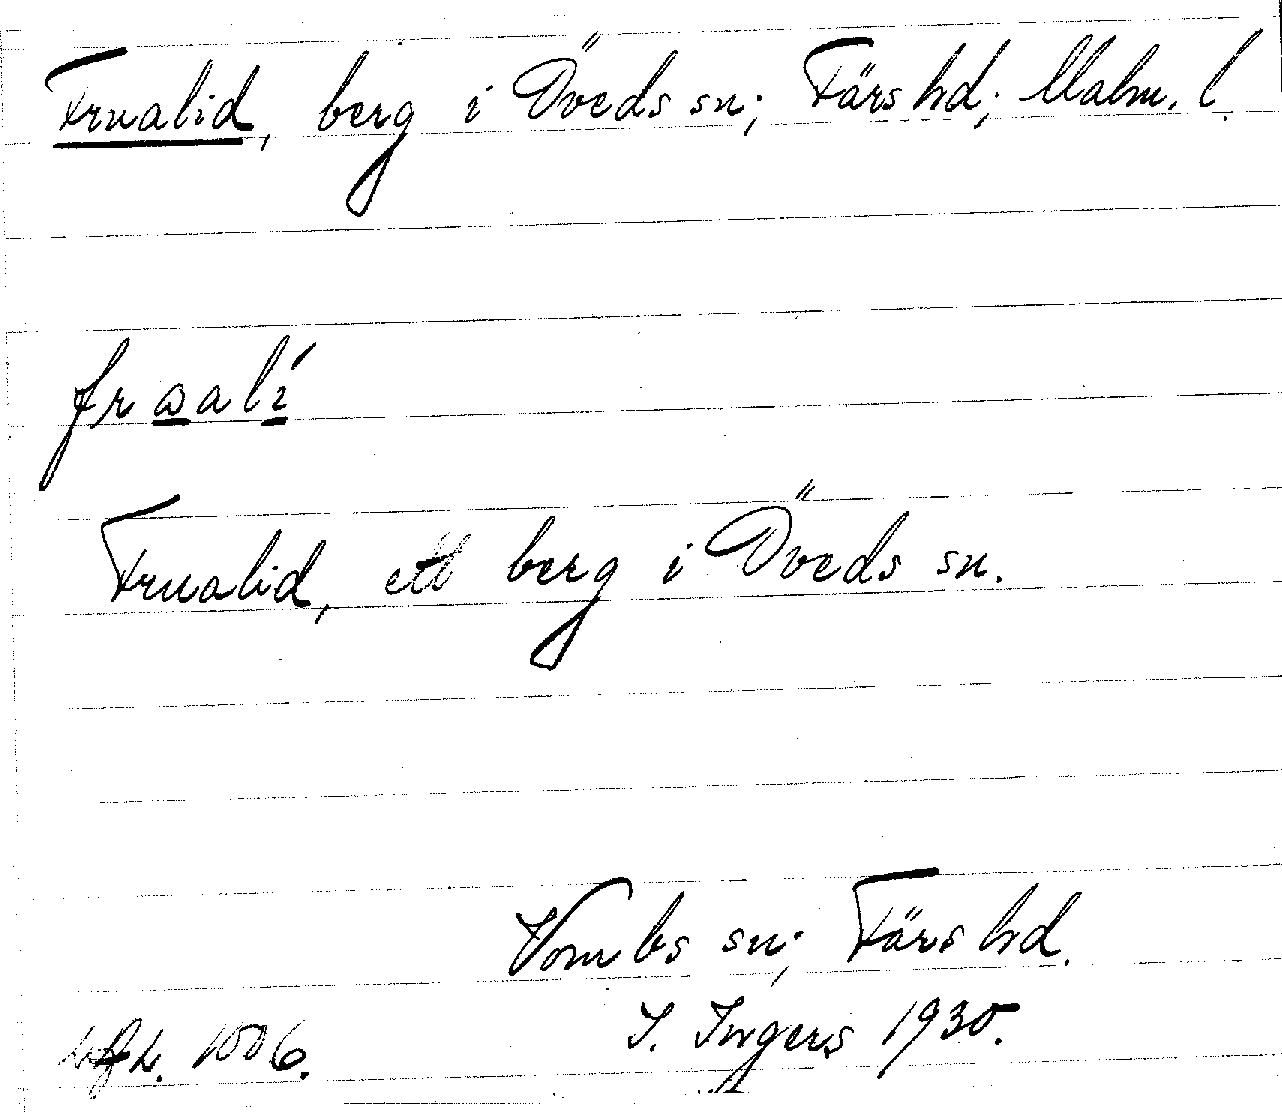 Frualid, berg i Öveds sn; Färs hd; Malm. l.
Frualid, ett berg i Öveds sn.
Vombs sn; Färs hd.
I. Ingers 1930.
1006.